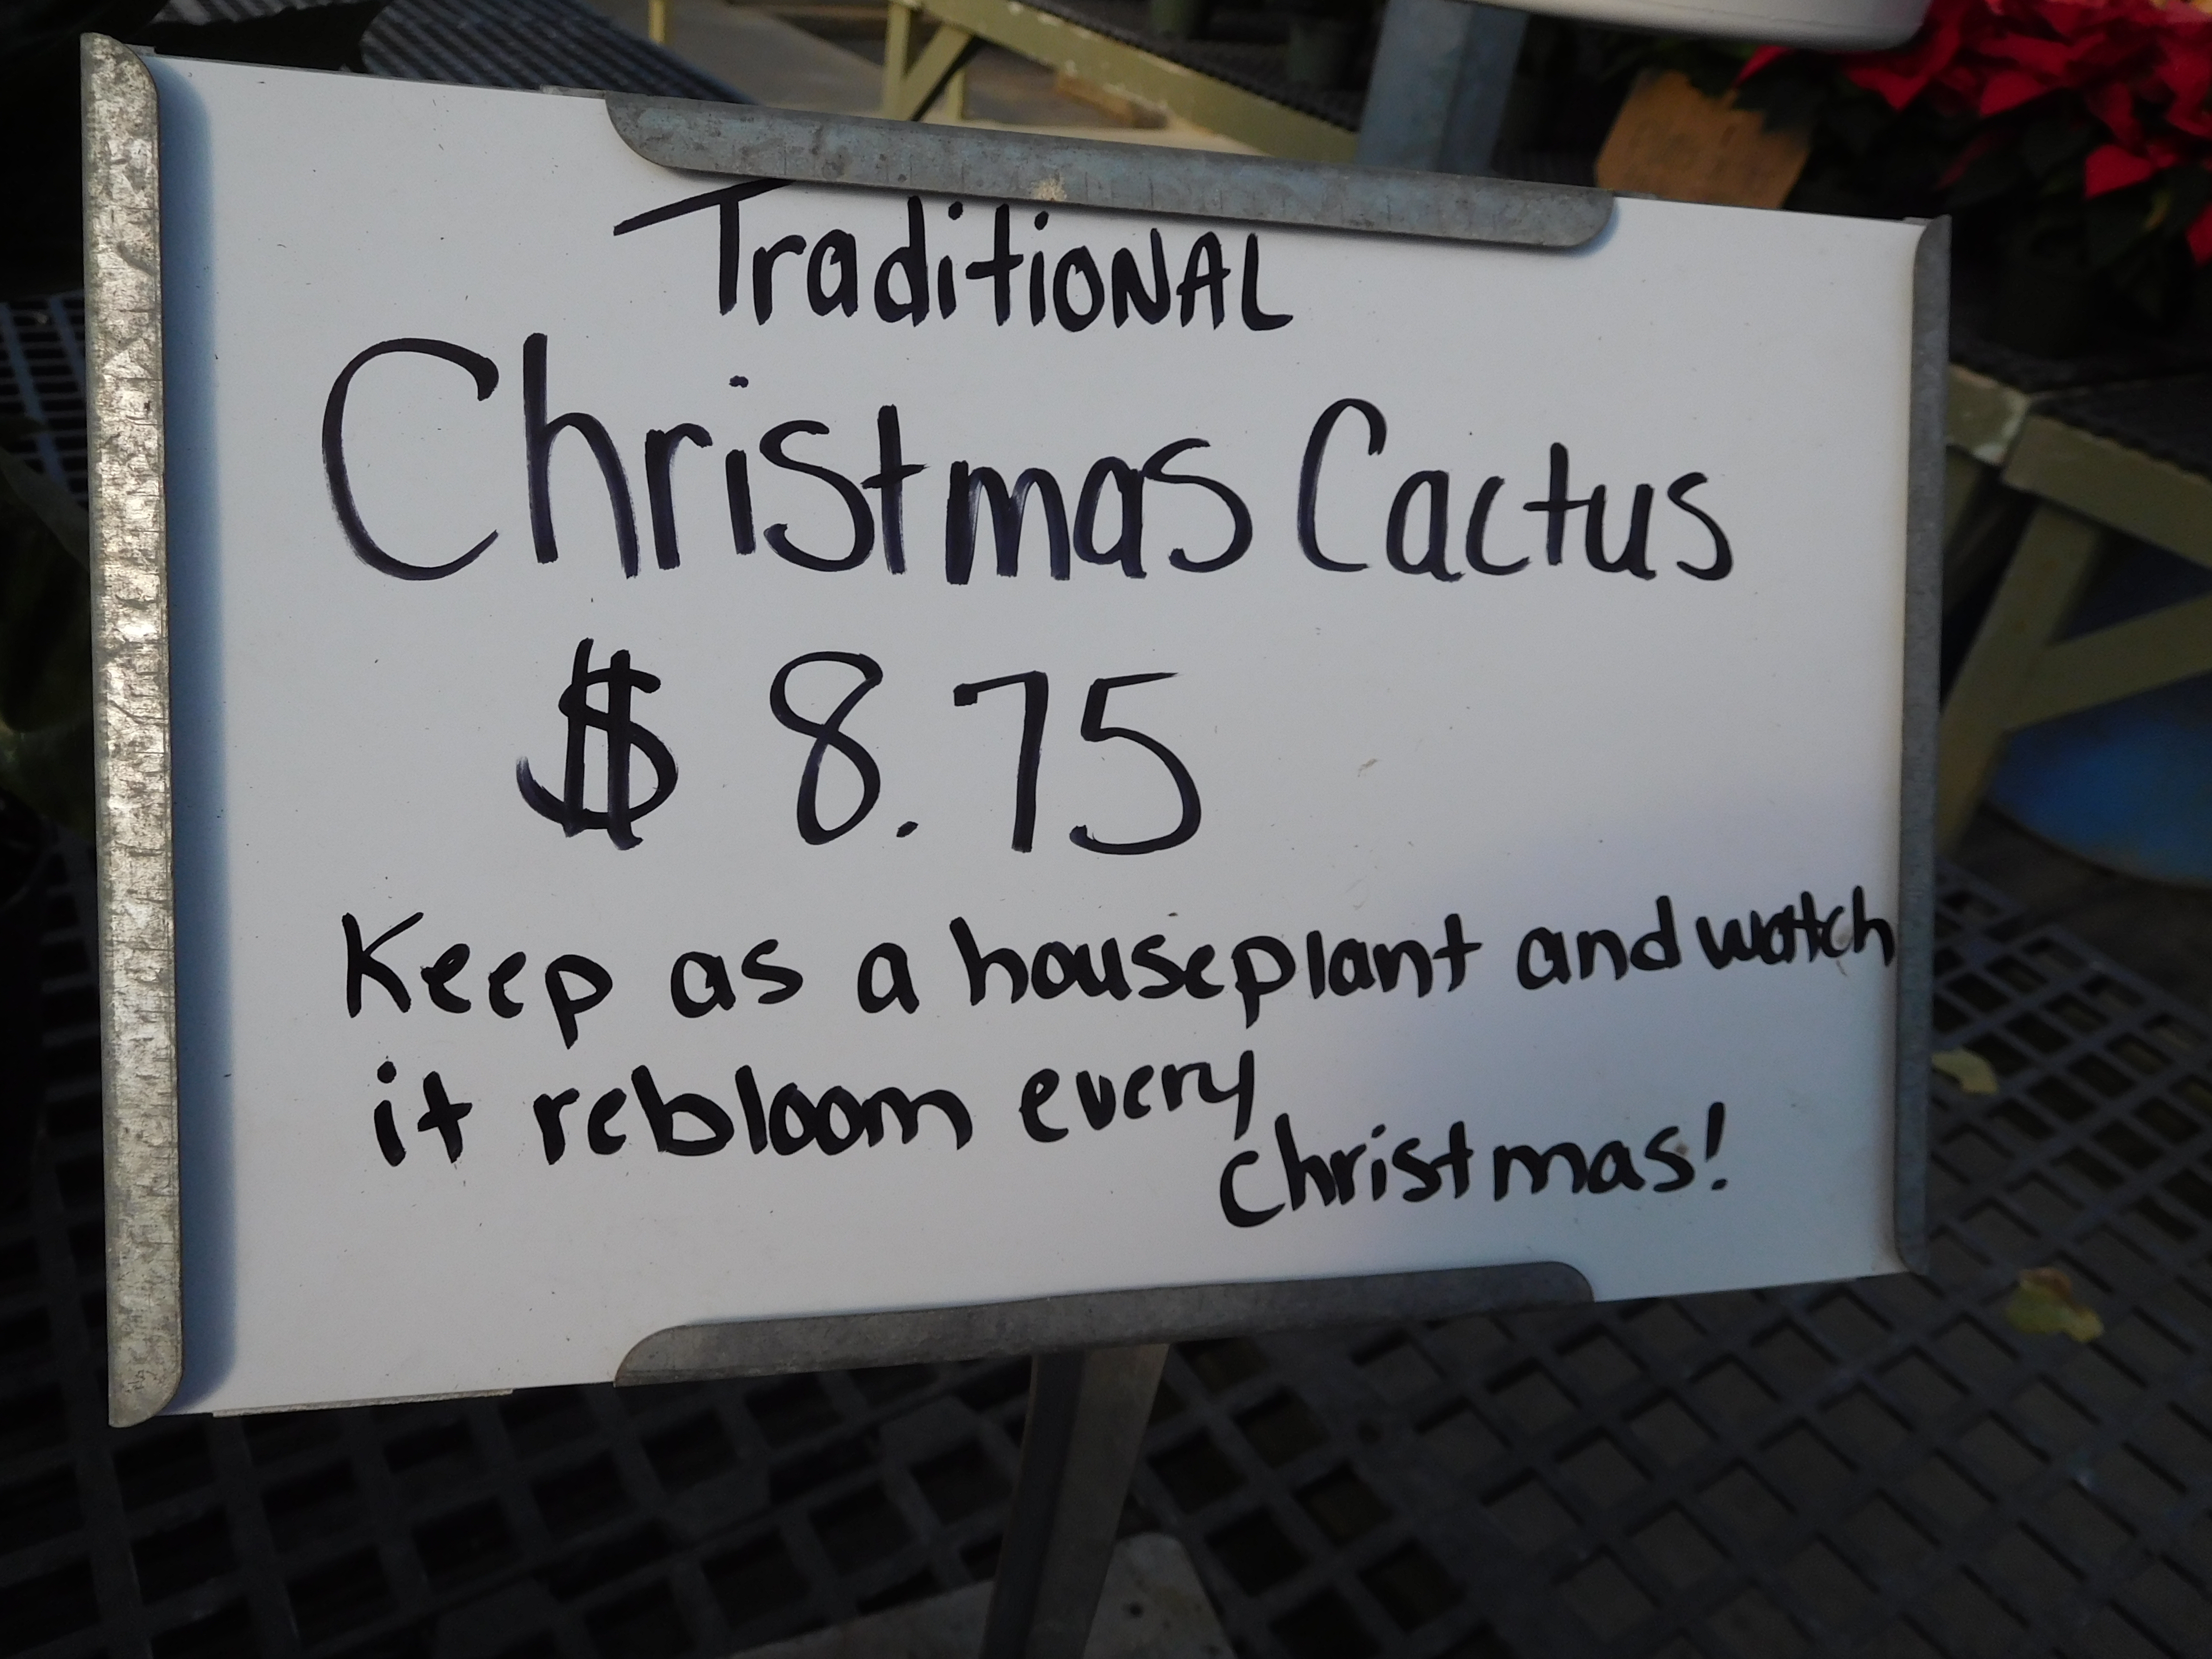 TraditiONAL
Christmas Cactus
$ 8.75
Keep as a houseplant and watch
it rebloom every
Christmas!